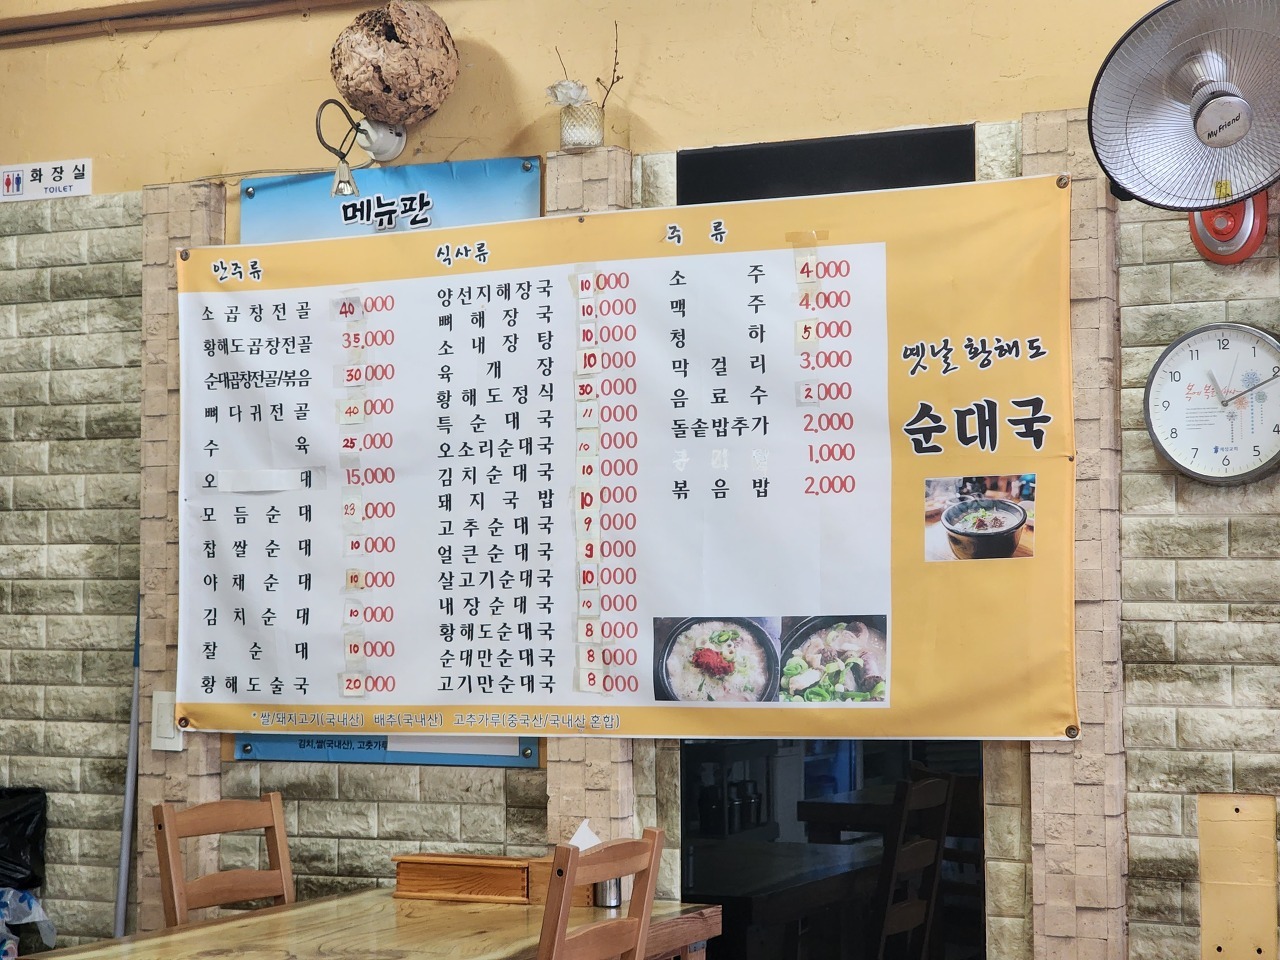 화장실
TOILET
메뉴판
My Friend
안주류
소곱창전골 40,000
황해도곱창전골 35,000
순대곱창전골/볶음 30,000
뼈다귀전골 40,000
수육 25,000
오 대 15,000
모듬순대 23,000
찹쌀순대 10,000
야채순대 10,000
김치순대 10,000
찰순대 10,000
황해도술국 20,000
식사류
양선지해장국 10,000
뼈해장국 10,000
소내장탕 10,000
육개장 10,000
황해도정식 30,000
특순대국 11,000
오소리순대국 10,000
김치순대국 10,000
돼지국밥 10,000
고추순대국 9,000
얼큰순대국 9,000
살고기순대국 10,000
내장순대국 10,000
황해도순대국 8,000
순대만순대국 8,000
고기만순대국 8,000
주류
소주 4,000
맥주 4,000
청하 5,000
막걸리 3,000
음료수 2,000
돌솥밥추가 2,000
1,000
볶음밥 2,000
옛날 황해도
순대국
* 쌀/돼지고기(국내산) 배추(국내산) 고추가루(중국산/국내산 혼합)
김치,쌀(국내산), 고춧가루
12
11
1
10
2
9
8
4
7
6
5